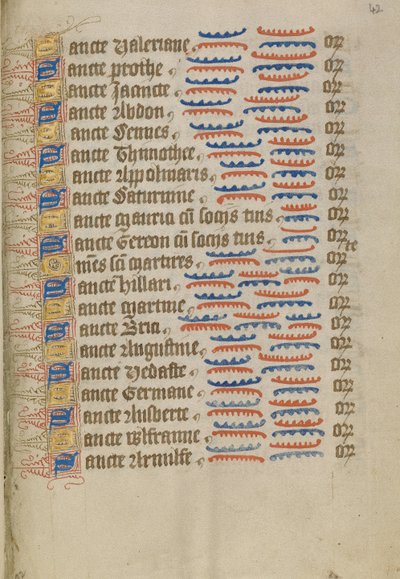 42
Sancte Valeriane, or
Sancte prothe, or
Sancte Jacincte or
Sancte Abdon or
Sancte Sennes or
Sancte Thimothee, or
Sancte Appolinaris or
Sancte Saturnine or
Sancte Maurici cū socijs tuis or
Sancte Gereon cū socijs tuis, or
Omēs scī martires orte
Sancte hillari, or
Sancte Martine, or
Sancte Brici, or
Sancte Augustine, or
Sancte Vedaste, or
Sancte Germane, or
Sancte Ausberte, or
Sancte wlfranne, or
Sancte Arnulfe, or